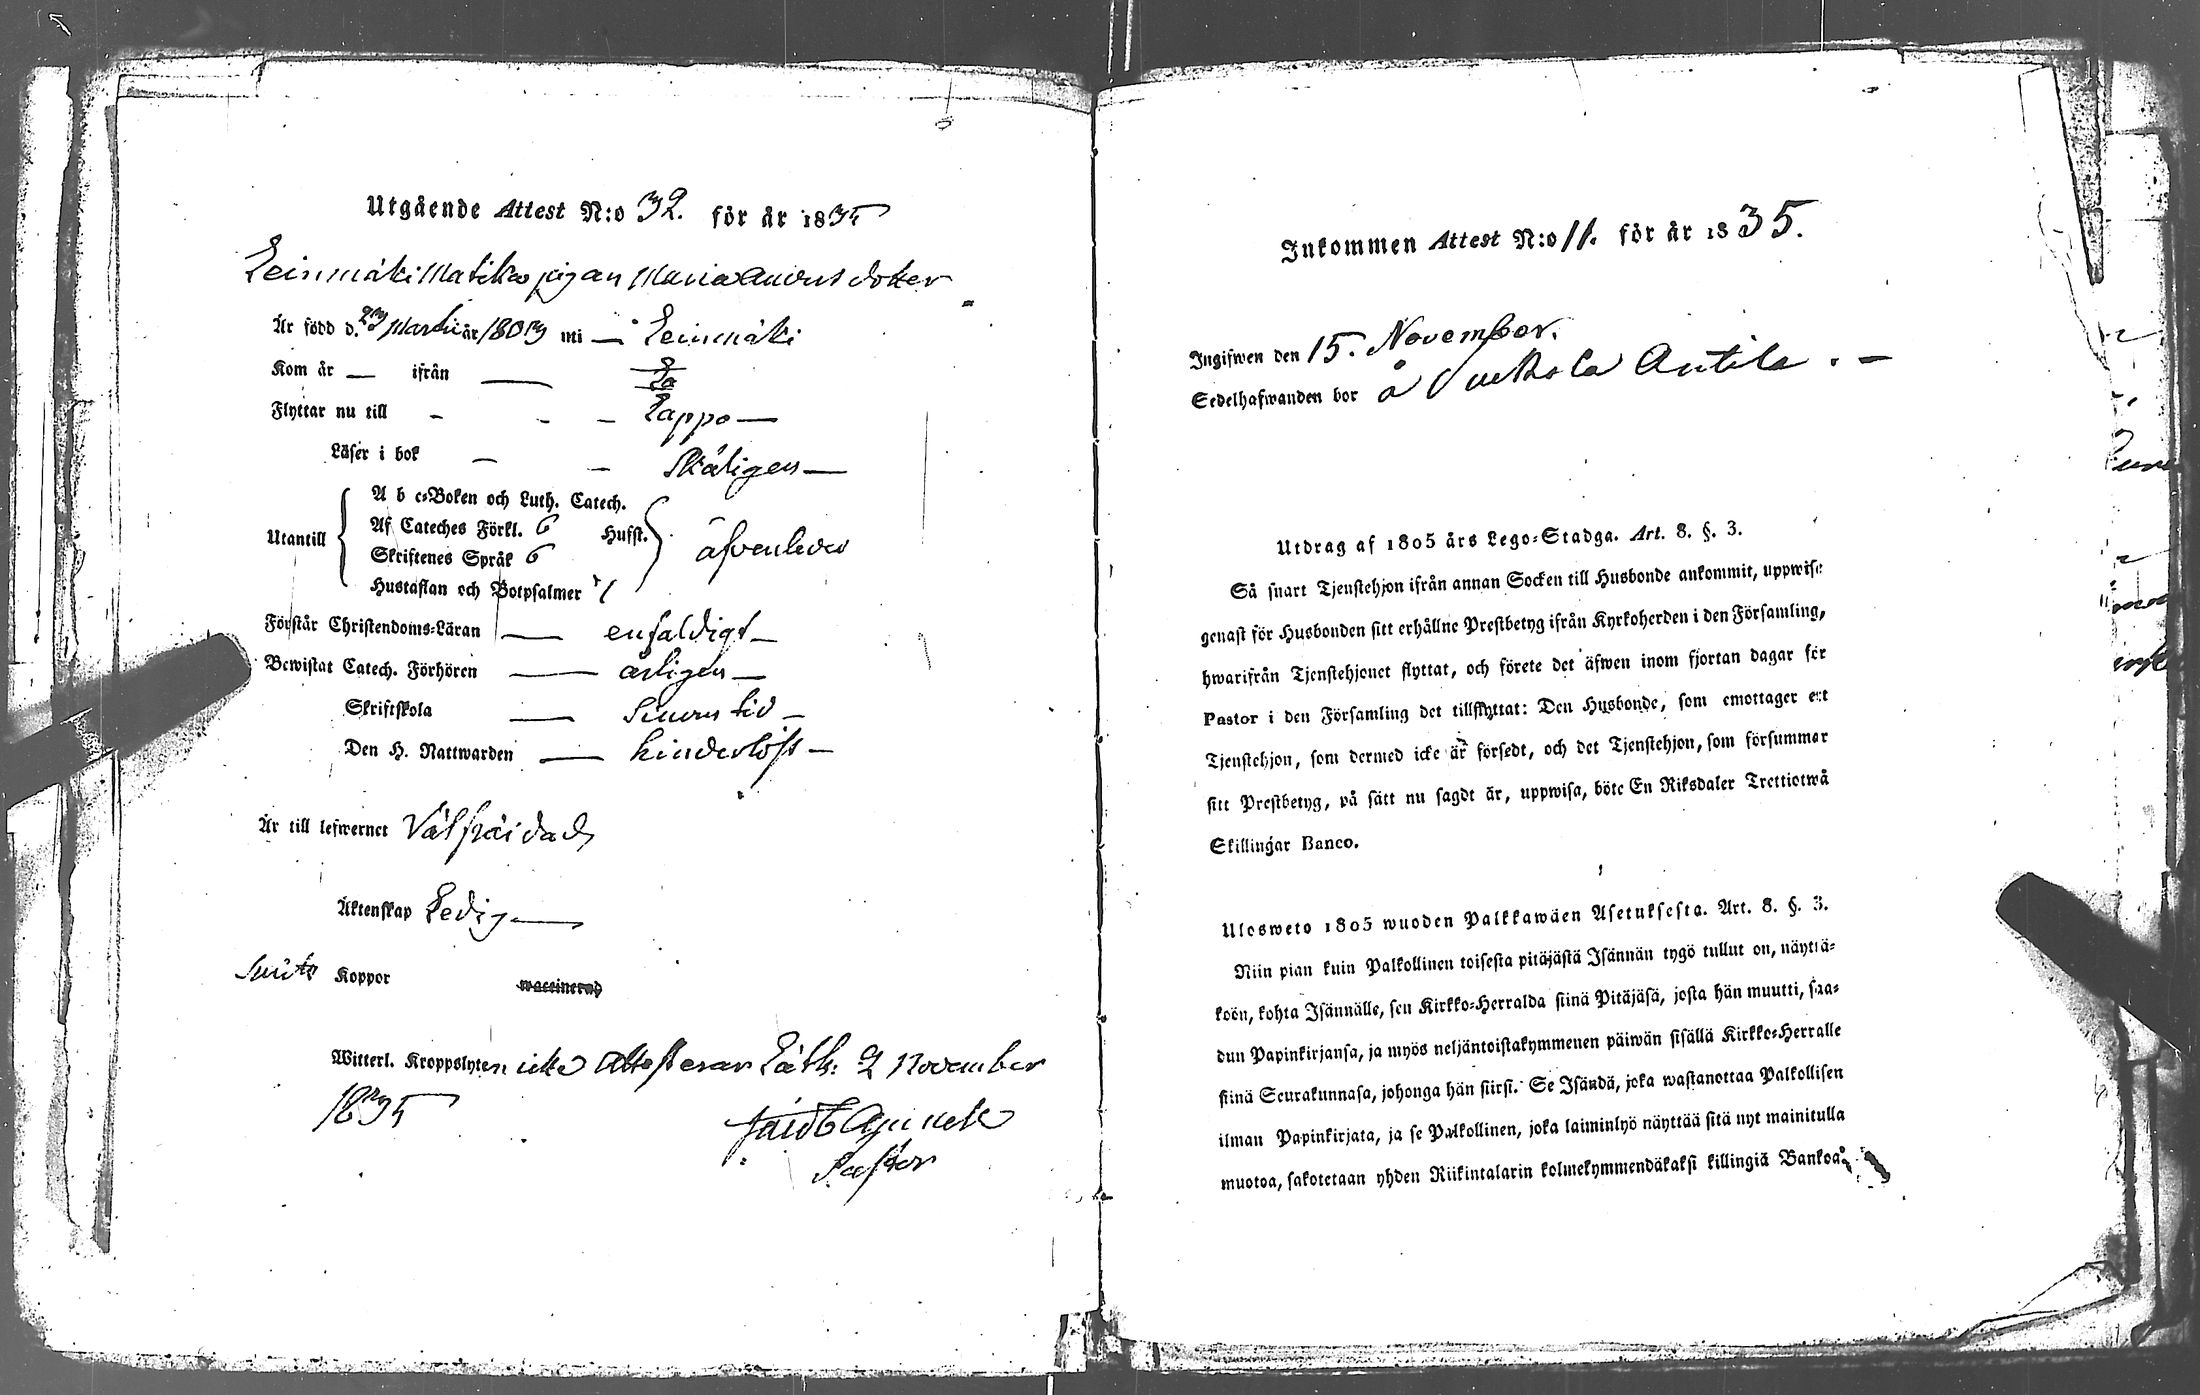 Utgående Attest N:o 32. för år 1835
Leinmäki Matikw pigan Maria Anders dotter
Är född d. 23 Martii år 1803 uti — Leinmäki
Kom år — ifrån —
Flyttar nu till - - - Lappo —
Läser i bok — - Skäligen —
Utantill
A b c-Boken och Luth. Catech.
Af Cateches Förkl. 6 Hufst.
Skriftenes Språk 6
Hustaflan och Botpsalmer 7
äfvenledes
Förstår Christendoms-Läran — enfaldigt —
Bewistat Catech. Förhören — årligen —
Skriftskola — sin tid —
Den H. Nattwarden — hinderlöst —
Är till lefwernet Välfräjdad
Äktenskap Ledig —
Koppor waccinerad
Witterl. Kroppslyten icke Attesterar 2 November
1835
Pastor
Inkommen Attest N:o 11. för år 1835.
Ingifwen den 15. November.
Sedelhafwanden bor å Antila . —
Utdrag af 1805 års Lego-Stadga. Art. 8. §. 3.
Så snart Tjenstehjon ifrån annan Socken till Husbonde ankommit, uppwise
genast för Husbonden sitt erhållne Prestbetyg ifrån Kyrkoherden i den Församling,
hwarifrån Tjenstehjonet flyttat, och förete det äfwen inom fjortan dagar för
Pastor i den Församling det tillflyttat: Den Husbonde, som emottager ett
Tjenstehjon, som dermed icke är försedt, och det Tjenstehjon, som försummar
sitt Prestbetyg, på sätt nu sagdt är, uppwisa, böte En Riksdaler Trettiotwå
Skillingar Banco.
Ulosweto 1805 wuoden Palkkawäen Asetuksesta. Art. 8. §. 3.
Niin pian kuin Palkollinen toisesta pitäjästä Isännän tygö tullut on, näyttä-
köön, kohta Isännälle, sen Kirkko-Herralda siinä Pitäjäsä, josta hän muutti, saa-
dun Papinkirjansa, ja myös neljäntoistakymmenen päiwän sisällä Kirkko-Herralle
siinä Seurakunnasa, johonga hän siirsi. Se Isändä, joka wastanottaa Palkollisen
ilman Papinkirjata, ja se Palkollinen, joka laiminlyö näyttää sitä nyt mainitulla
muotoa, sakotetaan yhden Riikintalarin kolmekymmendäkaksi killingiä Bankoa.